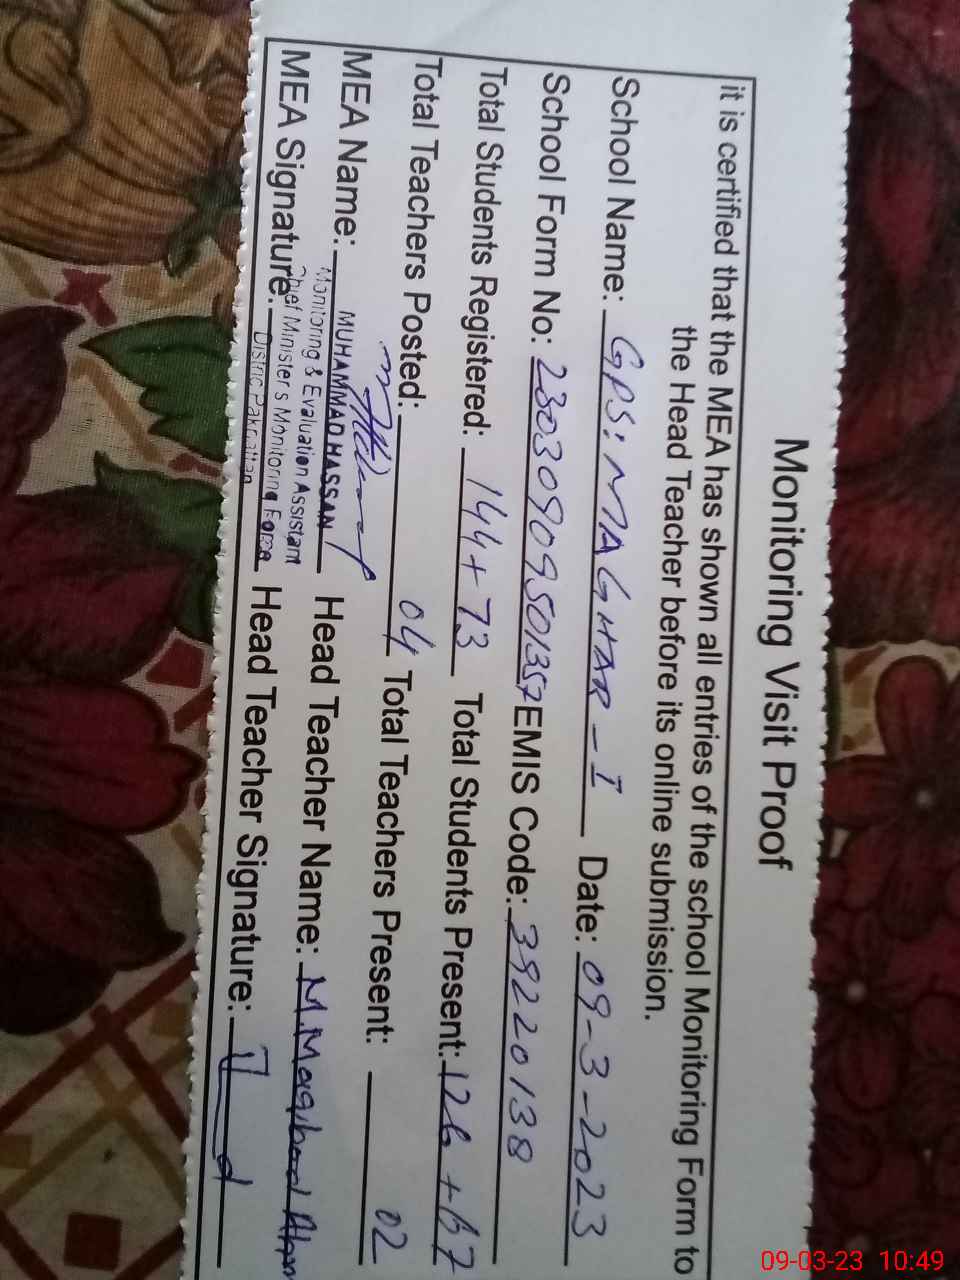 Monitoring Visit Proof
it is certified that the MEA has shown all entries of the school Monitoring Form to
the Head Teacher before its online submission.
School Name: GPS: MAGHAR - I Date: 09-3-2023
School Form No: 23030909501357 EMIS Code: 39220138
Total Students Registered: 144+73 Total Students Present: 126+67
Total Teachers Posted: 04 Total Teachers Present: 02
MEA Name: MUHAMMAD HASSAN Head Teacher Name: M. Maqbool
Monitoring & Evaluation Assistant
MEA Signature: Chief Minister s Monitoring Force Head Teacher Signature:
District Pakpattan
09-03-23 10:49